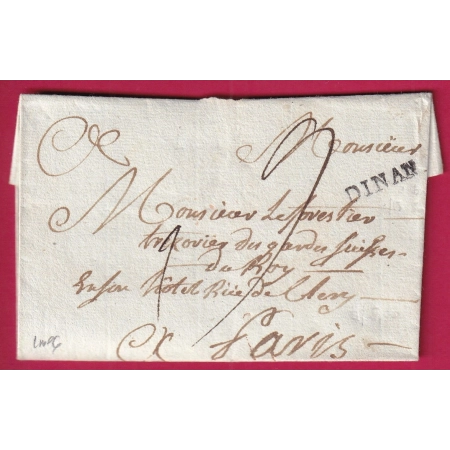 A
Monsieur
DINAN
Monsieur Leforestier
trezorier des gardes suisses
du Roy
En son hotel Rüe de Clery
A Paris